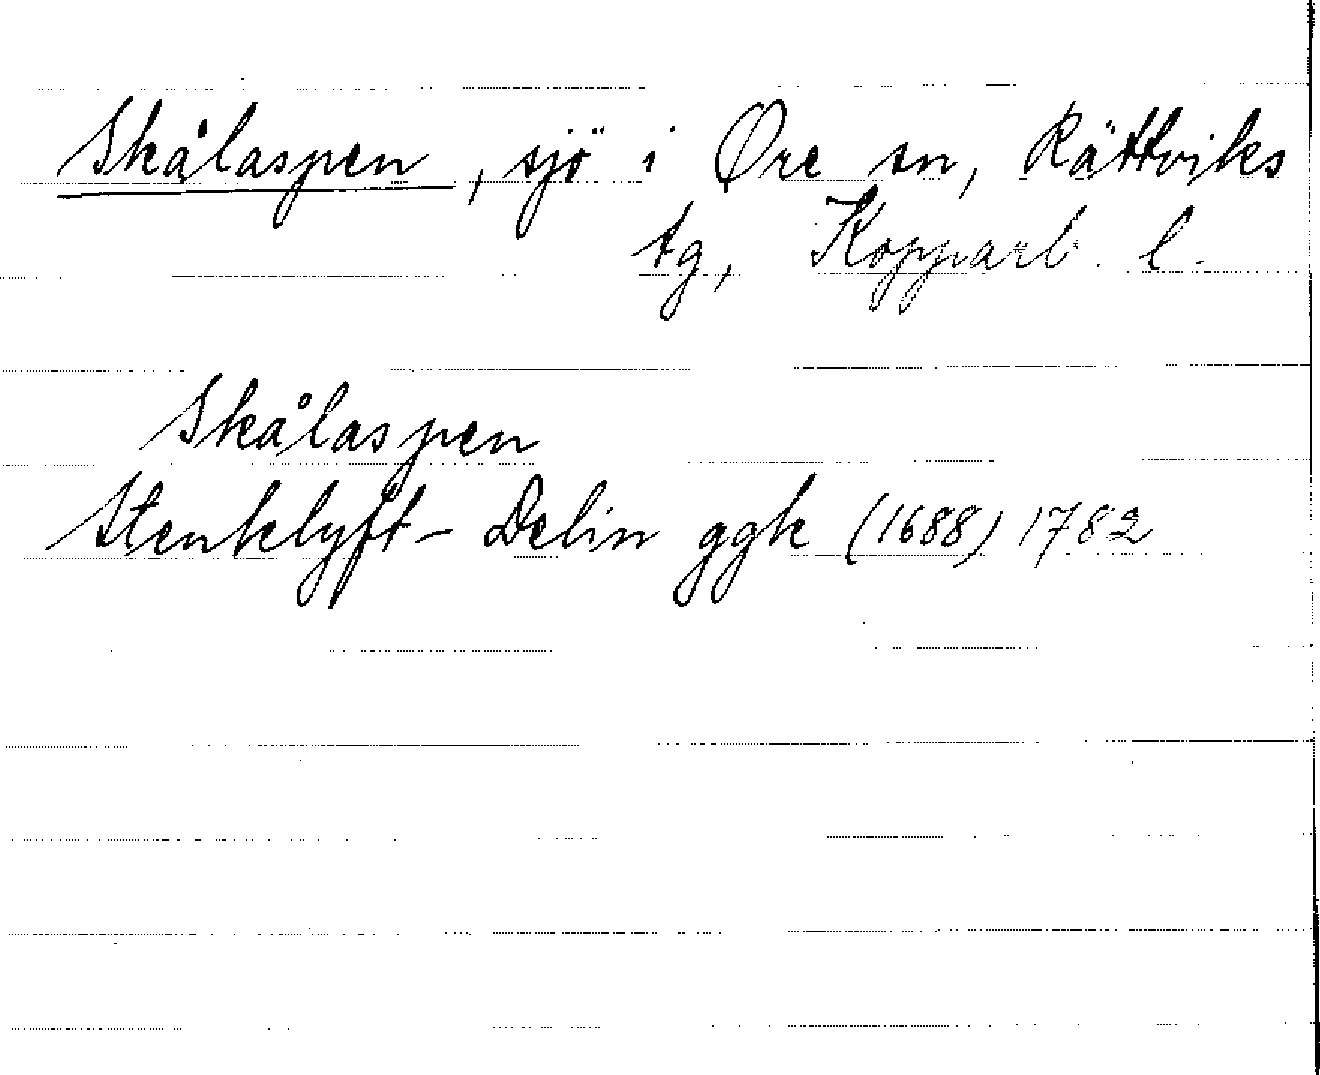 Skålaspen, sjö i Ore sn, Rättviks
tg, Kopparb. l.
Skålaspen
Stenklyft - Delin ggk (1688) 1782